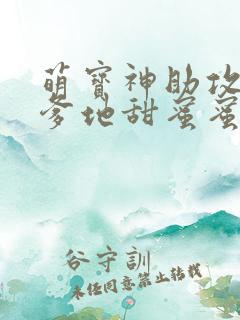 萌寶神助攻
爹地甜蜜蜜
谷守訓
未经同意禁止转载